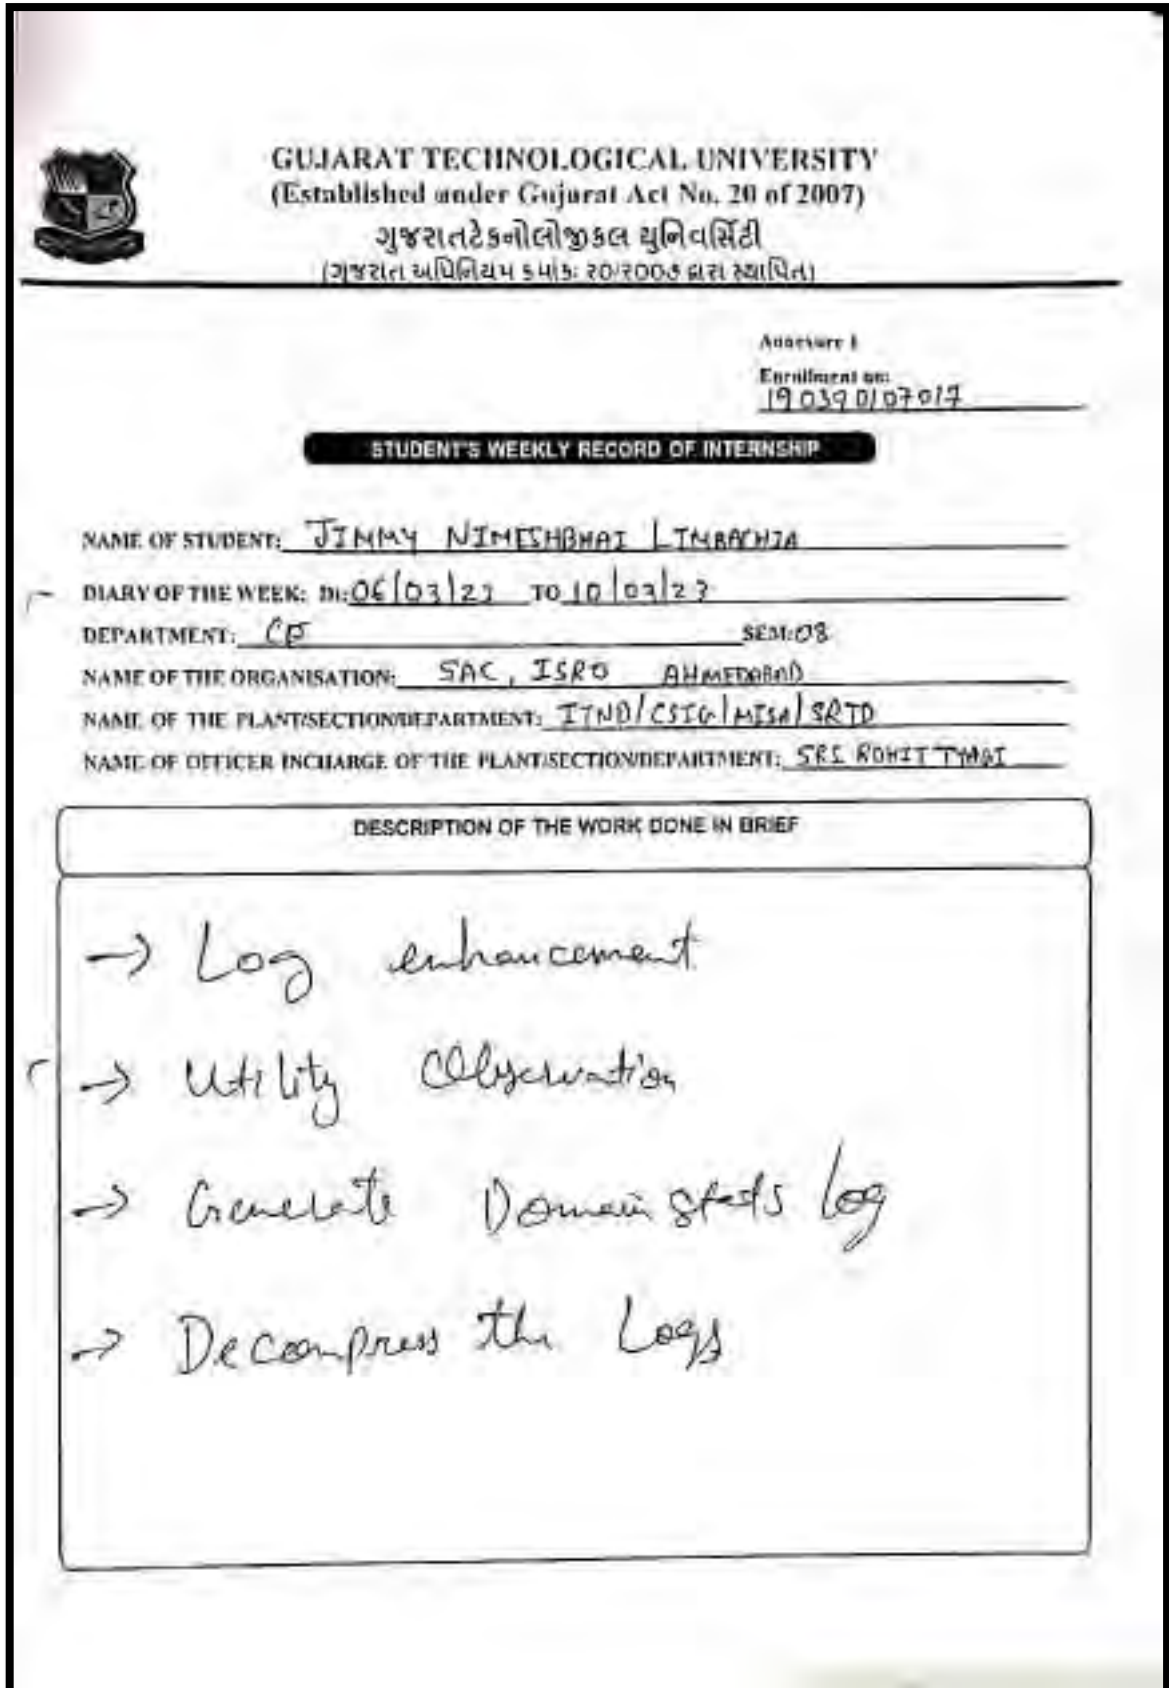 GUJARAT TECHNOLOGICAL UNIVERSITY
(Established under Gujarat Act No. 20 of 2007)
ગુજરાતટેકનોલોજીકલ યુનિવર્સિટી
(ગુજરાત અધિનિયમ ક્રમાંકઃ ૨૦/૨૦૦૭ દ્વારા સ્થાપિત)
Annexure 1
Enrollment no:
190390107017
STUDENT'S WEEKLY RECORD OF INTERNSHIP
NAME OF STUDENT: JIMMY NIMESHBHAI LIMBACHIA
DIARY OF THE WEEK: Dt: 06/03/23 TO 10/03/23
DEPARTMENT: CE SEM: 08
NAME OF THE ORGANISATION: SAC, ISRO AHMEDABAD
NAME OF THE PLANT/SECTION/DEPARTMENT: ITND/CSIG/MISA/SRTD
NAME OF OFFICER INCHARGE OF THE PLANT/SECTION/DEPARTMENT: SRI ROHIT TYAGI
DESCRIPTION OF THE WORK DONE IN BRIEF
→ Log enhancement
→ Utility Observation
→ Generate Domain stats log
→ Decompress the Logs